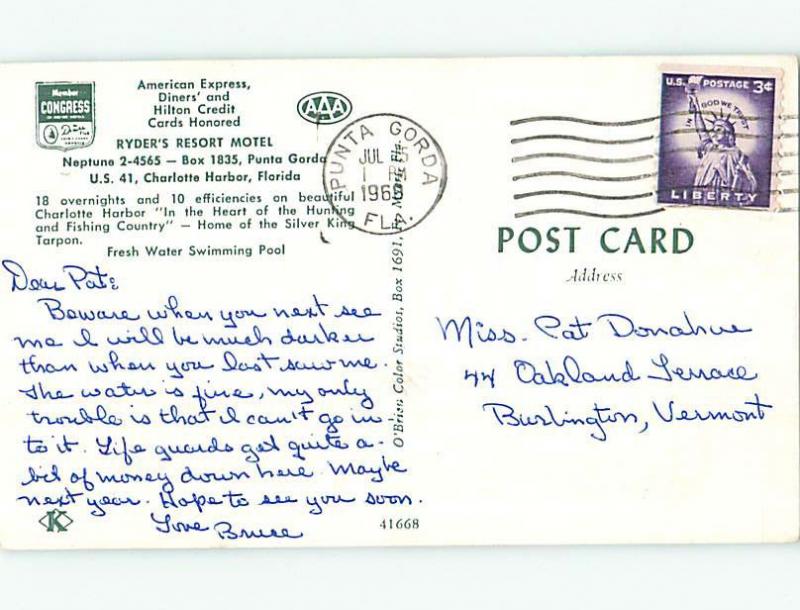 Member
CONGRESS
American Express,
Diners' and
Hilton Credit
Cards Honored
AAA
RYDER'S RESORT MOTEL
Neptune 2-4565 — Box 1835, Punta Gorda
U.S. 41, Charlotte Harbor, Florida
18 overnights and 10 efficiencies on beautiful
Charlotte Harbor "In the Heart of the Hunting
and Fishing Country" — Home of the Silver King
Tarpon.
Fresh Water Swimming Pool
PUNTA GORDA
JUL
PM
FLA.
U.S. POSTAGE 3¢
IN GOD WE TRUST
LIBERTY
POST CARD
Address
Dear Pat:
Beware when you next see
me I will be much darker
than when you last saw me.
The water is fine, my only
trouble is that I can't go in-
to it. Life guards get quite a-
bit of money down here. Maybe
next year. Hope to see you soon.
Love Bruce
K
41668
O'Brien Color Studios, Box 1691,
Miss. Pat Donahue
44 Oakland Terrace
Burlington, Vermont